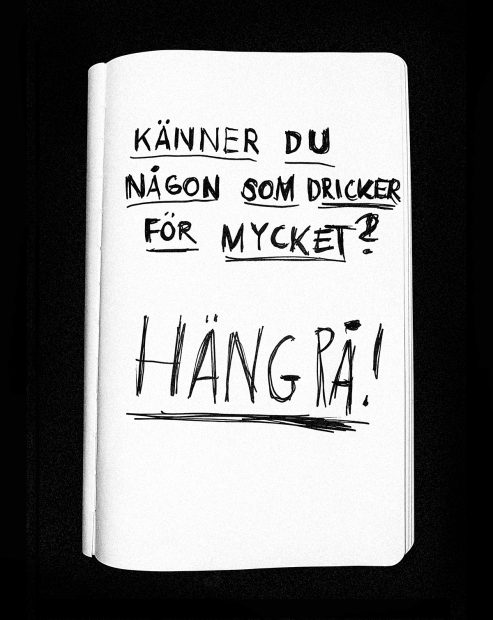 KÄNNER DU
NÅGON SOM DRICKER
FÖR MYCKET?
HÄNG PÅ!